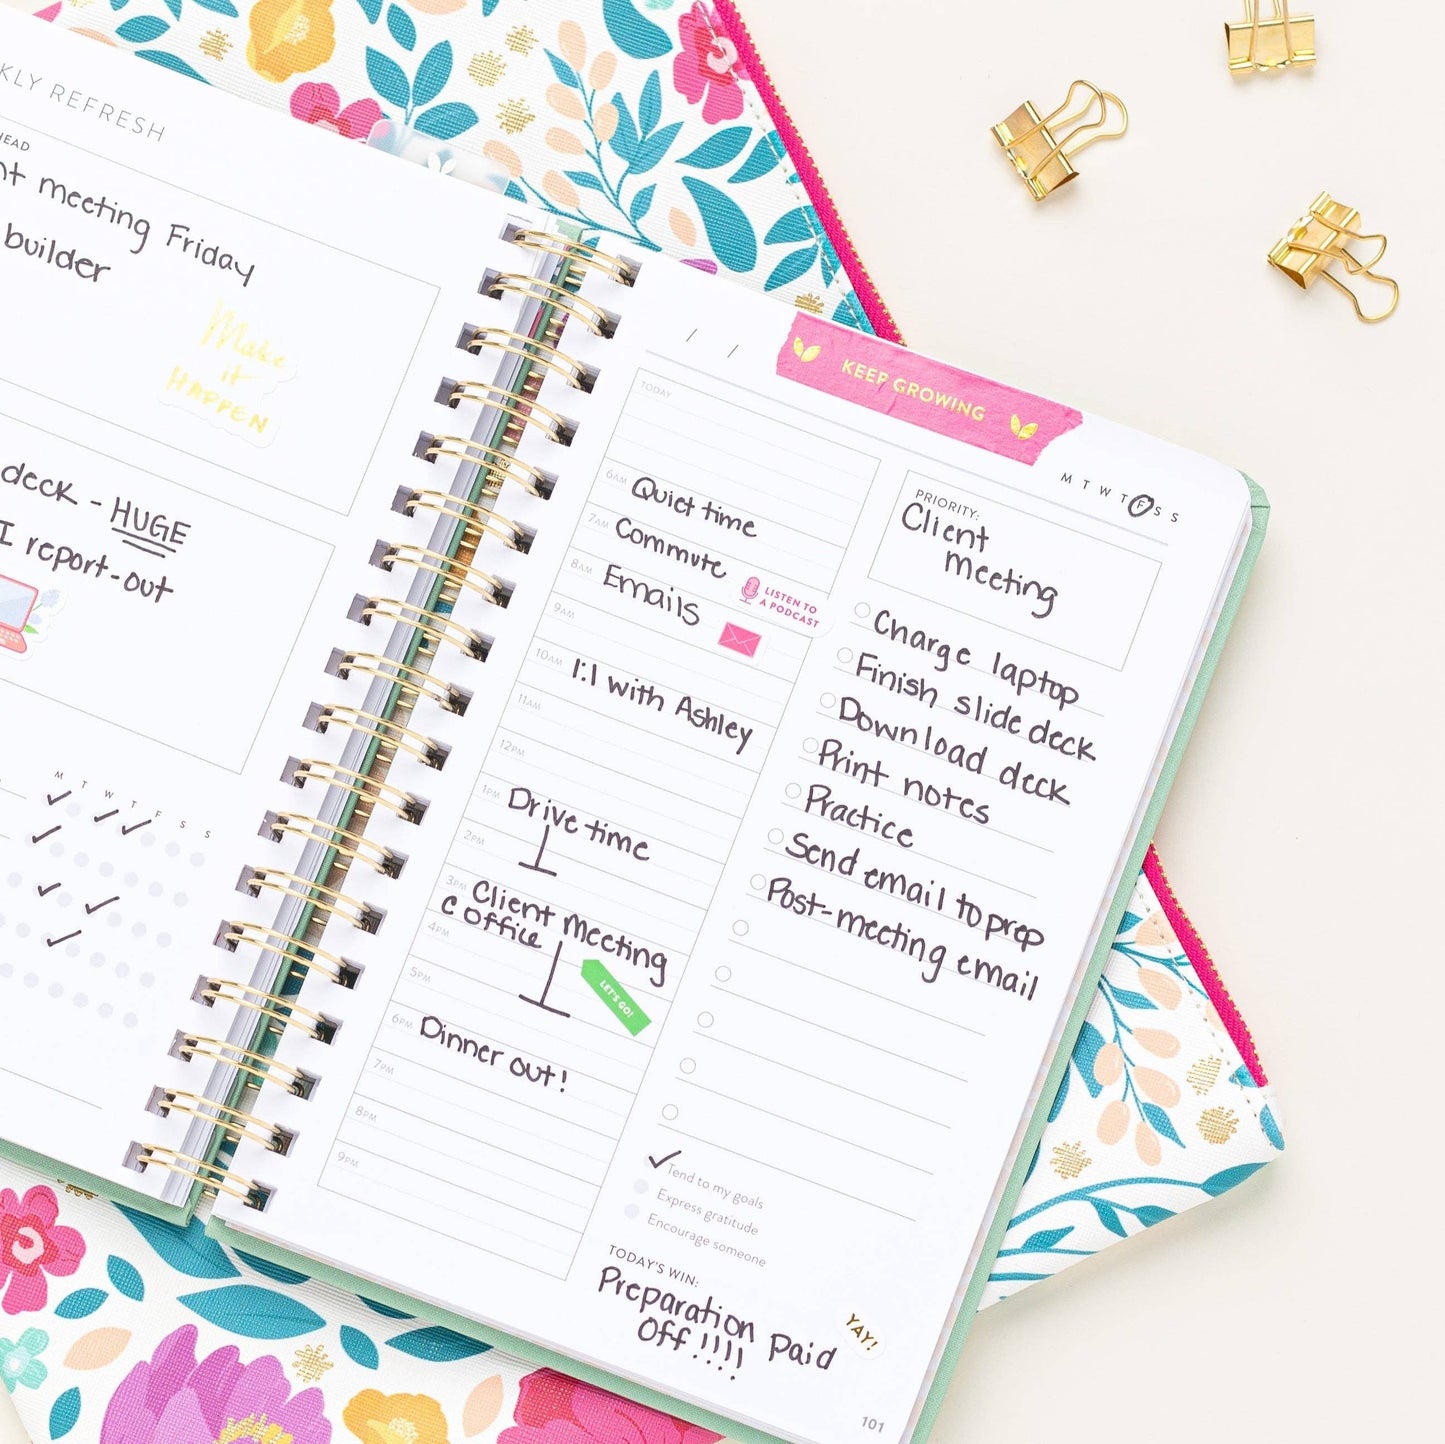 KLY REFRESH
HEAD
nt meeting Friday
builder
Make
it
HAPPEN
deck - HUGE
I report-out
M T W T F S S
/ /
KEEP GROWING
M T W T F S S
TODAY
6AM Quiet time
7AM Commute
LISTEN TO
A PODCAST
8AM Emails
9AM
10AM 1:1 with Ashley
11AM
12PM
1PM Drive time
2PM
3PM Client meeting
c office
4PM
LET'S GO!
5PM
6PM Dinner out!
7PM
8PM
9PM
PRIORITY:
Client
meeting
Charge laptop
Finish slide deck
Download deck
Print notes
Practice
Send email to prep
Post-meeting email
Tend to my goals
Express gratitude
Encourage someone
TODAY'S WIN:
Preparation Paid
Off!!!!
YAY!
101